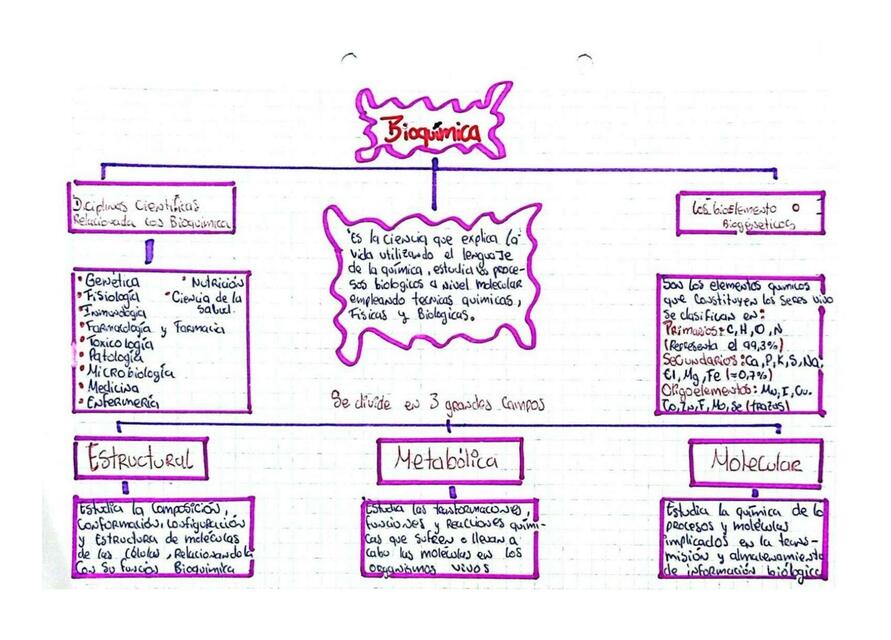 Bioquímica
Diciplinas Cientificas
Relacionada Con Bioquimica
• Genética
• Fisiología
• Inmunologia
• Farmacología y Farmacia
• Toxicología
• Patología
• Microbiología
• Medicina
• Enfermería
• Nutrición
• Ciencia de la
salud.
Es la Ciencia que explica la
vida utilizando el lenguaje
de la química, estudia los proce-
sos biologicos a nivel molecular
empleando tecnicas quimicas,
Fisicas y Biologicas.
Los bioelemento o
Biogeneticos
Son los elementos quimicos
que Constituyen los seres vivo
se clasifican en:
Primarios: C, H, O, N
(Representa el 99,3%)
Secundarios: Ca, P, K, S, Na,
Cl, Mg, Fe (=0,7%)
Oligoelementos: Mn, I, Cu.
Co, Zn, F, Mo, Se (trazas)
Se divide en 3 grandes Campos
Estructural
Estudia la Composición,
Conformación, configuración
y Estructura de moleculas
de las células, Relacionandola
Con Su función Bioquimica
Metabólica
Estudia las transformaciones,
funciones y reacciones quimi-
cas que sufren o llevan a
cabo las moleculas en los
organismos vivos
Molecular
Estudia la química de lo
procesos y moleculas
implicados en la trans-
misión y almacenamiento
de información biológica